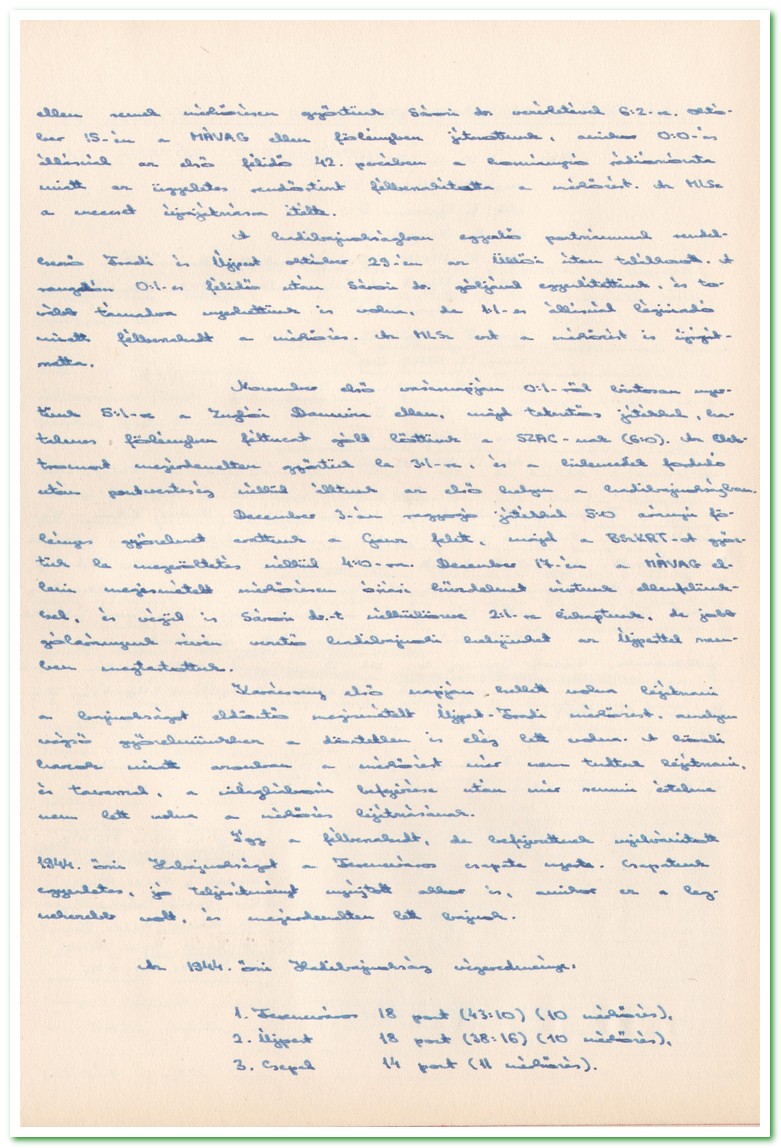 ellen remek mérkőzésen győztünk Sárosi dr. vezérletével 6:2-re. Októ-
ber 15-én a MÁVAG ellen fölényben játszottunk, amikor 0:0-ás
állásnál az első félidő 42. percében a kormányzó rádiószózata
miatt az ügyeletes rendőrtiszt félbeszakította a mérkőzést. Az MLSz
a meccset újrajátszásra ítélte.
A hadibajnokságban egyenlő pontszámmal rendel-
kező Fradi és Újpest október 29-én az Üllői úton találkozott. A
0:1-es félidő után Sárosi dr. góljával egyenlítettünk, és to-
vább támadva nyerhettünk is volna, de 1:1-es állásnál légiriadó
miatt félbeszakadt a mérkőzés. Az MLSz ezt a mérkőzést is újraját-
szatta.
November első vasárnapján 0:1-ről biztosan nyer-
tünk 5:1-re a Zuglói Danuvia ellen, majd tekintős játékkal, ha-
talmas fölényben féltucat gólt lőttünk a SZAC-nak (6:0). Az Elek-
tromost megérdemelten győztük le 3:1-re, és a tizenegyedik forduló
után pontveszteség nélkül álltunk az első helyen a hadibajnokságban.
December 3-án nagyszerű játékkal 5:0 arányú fö-
lényes győzelmet arattunk a Ganz felett, majd a BSzKRT-ot győz-
tük le megerőltetés nélkül 4:0-ra. December 17-én a MÁVAG el-
leni megismételt mérkőzésen óriási küzdelmet vívtunk ellenfelünk-
kel, és végül is Sárosi dr.-t nélkülözve 2:1-re kikaptunk, de jobb
gólarányunk révén vezető hadibajnoki helyünket az Újpesttel szem-
ben megtartottuk.
Karácsony első napján kellett volna lejátszani
a bajnokságot eldöntő megismételt Újpest-Fradi mérkőzést, amelyen
végső győzelmünkhöz a döntetlen is elég lett volna. A közeli
harcok miatt azonban a mérkőzést már nem tudtuk lejátszani,
és tavasszal, a világháború befejezése után már semmi értelme
nem lett volna a mérkőzés lejátszásának.
Így a félbeszakadt, de befejezettnek nyilvánított
1944. őszi Hadibajnokságot a Ferencváros csapata nyerte. Csapatunk
egyenletes, jó teljesítményt nyújtott akkor is, amikor ez a leg-
nehezebb volt, és megérdemelten lett bajnok.
Az 1944. őszi Hadibajnokság végeredménye:
1. Ferencváros 18 pont (43:10) (10 mérkőzés),
2. Újpest 18 pont (38:16) (10 mérkőzés),
3. Csepel 14 pont (11 mérkőzés).